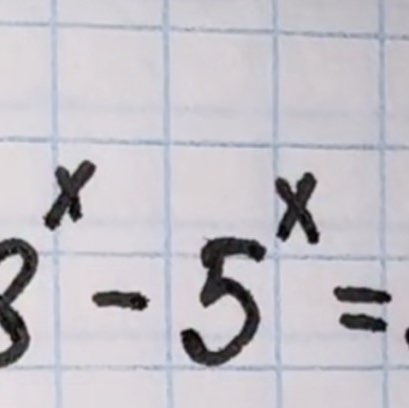 3^x - 5^x =